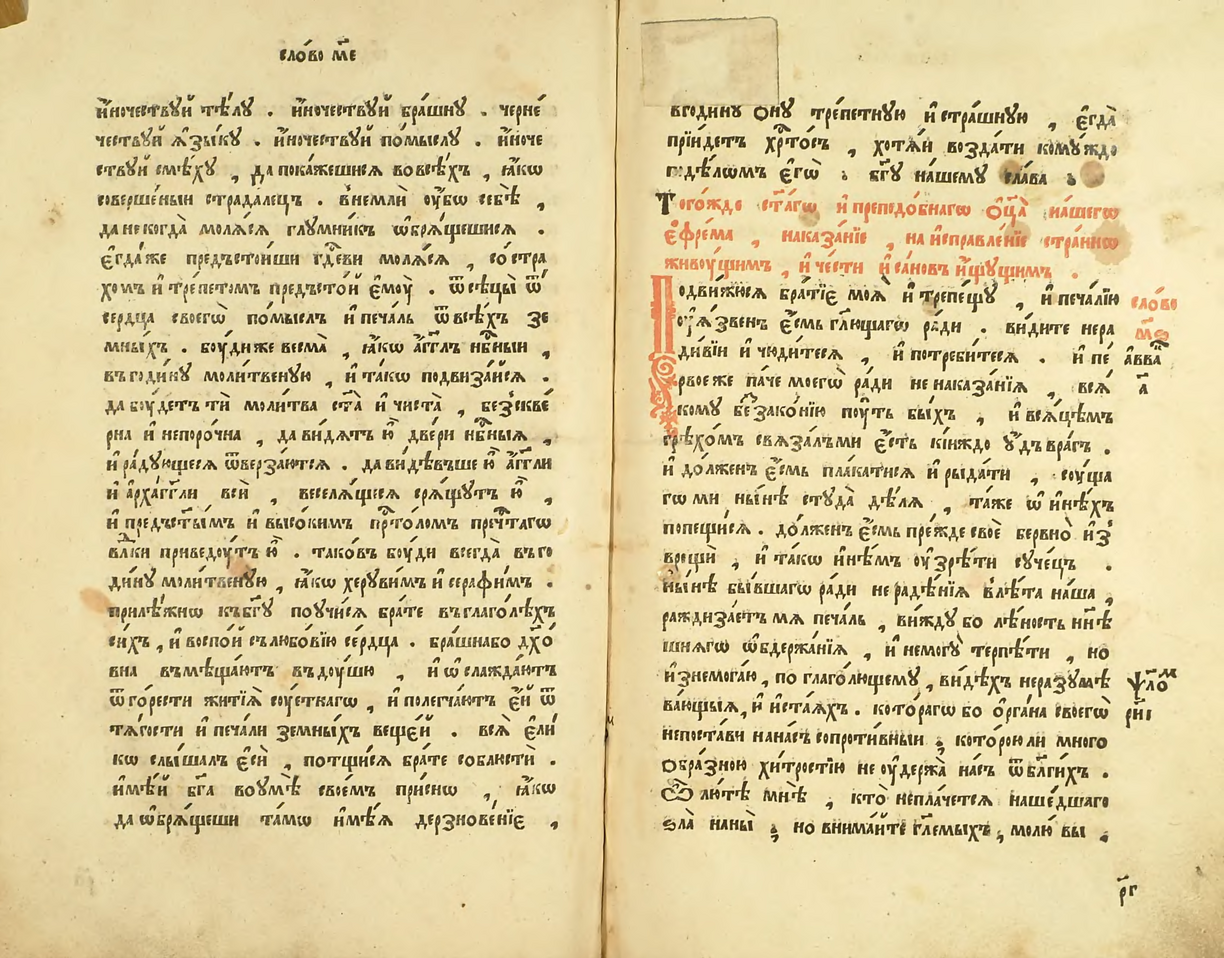 сло́во м҃е
и҆́ночествꙋй тѣ́лꙋ . и҆́ночествꙋй бра́шнꙋ . черне́
чествꙋй ѧ҆зы́кꙋ . и҆́ночествꙋй по́мыслꙋ . и҆́ноче
ствꙋй смѣ́хꙋ , да покаже́шисѧ во всѣ́хъ , ꙗ҆́кѡ
соверше́ныи страда́лецъ . вне́мли ᲂу҆́бѡ себѣ̀ ,
да не когда̀ молѧ́сѧ глꙋ́мникъ ѡ҆брѧ́щешисѧ .
є҆гда́ же предъстои́ши гдⷭ҇еви молѧ́сѧ , со стра
хомъ и҆ тре́петомъ предъсто́й є҆мᲂу̀ . ѿсѣцы̀ ѿ
се́рдца своегѡ̀ по́мыслъ и҆ печа́ль ѿ всѣ́хъ зе
мны́хъ . бᲂу́ди же весма̀ , ꙗ҆́кѡ а҆́гг҃лъ нбⷭ҇ныи ,
въ годи́нꙋ моли́твенꙋю , и҆ та́кѡ подвиза́йсѧ .
да бᲂу́детъ тѝ моли́тва ст҃а̀ и҆ чиста̀ , без̾скве́
рна и҆ непоро́чна , да ви́дѧтъ ю҆̀ две́ри нбⷭ҇ныѧ ,
и҆ ра́дꙋющесѧ ѿверза́ютсѧ . да ви́дѣвъше ю҆̀ а҆́гг҃ли
и҆ а҆рха́гг҃ли всѝ , веселѧ́щесѧ срѧ́щꙋтъ ю҆̀ ,
и҆ предъст҃ы́мъ и҆ высо́кимъ прⷭ҇то́ломъ пречⷭ҇тагѡ
влⷣки приведᲂу́тъ ю҆̀ . тако́въ бᲂу́ди всегда̀ въ го
ди́нꙋ моли́твенꙋю , ꙗ҆́кѡ херꙋви́мъ и҆ серафи́мъ .
прилѣ́жнѡ къ бг҃ꙋ поꙋчи́сѧ бра́те въ глаго́лѣхъ
си́хъ , и҆ воспо́й съ любо́вїю се́рдца . бра́шна бо дх҃о́
вна въмѣща́ютъ въ дᲂу́шю , и҆ ѡ҆слажда́ютъ
ѿ го́рести житїѧ̀ сᲂу́еткагѡ , и҆ полегча́ютъ є҆́й ѿ
тѧ́гости и҆ печа́ли земны́хъ веще́й . всѧ̀ є҆ли́
кѡ слы́шалъ є҆сѝ , потщи́сѧ бра́те соблюстѝ .
и҆мѣ́й бг҃а воꙋмѣ̀ свое́мъ при́снѡ , ꙗ҆́кѡ
да ѡ҆брѧ́щеши та́мѡ и҆мѣ́ѧ дерзнове́нїе ,
в годи́нꙋ ѻ҆́нꙋ тре́петнꙋю и҆ стра́шнꙋю , є҆гда̀
прїи́детъ хрⷭ҇то́съ , хотѧ́й возда́ти комꙋ́ждо
по дѣ́лѡмъ є҆гѡ̀ . бг҃ꙋ на́шемꙋ сла́ва .
Того́жде ст҃а́гѡ и҆ преподо́бнагѡ ѻ҆ц҃а̀ на́шегѡ
є҆фре́ма , наказа́нїе , на и҆справле́нїе стра́ннѡ
живᲂу́щимъ , и҆ че́сти и҆ са́новъ и҆́щꙋщимъ .
сло́во
м҃ѕ
Подви́жюсѧ бра́тїе моѧ̀ и҆ трепе́щꙋ , и҆ печа́лїю
ᲂу҆ѧ́звенъ є҆́смь гл҃ющагѡ ра́ди . ви́дите нера
ди́вїи и҆ чюди́тесѧ , и҆ потреби́тесѧ . и҆ пе́
авва̀
а҃
рвое же па́че моегѡ̀ ра́ди ненаказа́нїѧ , всѧ́
кому беззако́нїю пᲂу́ть бы́хъ , и҆ всѧ́цѣмъ
грѣхо́мъ свѧза́лъ мѝ є҆́сть кі́иждо ᲂу҆́дъ вра́гъ .
и҆ до́лженъ є҆́смь пла́катисѧ и҆ рыда́ти , сᲂу́ща
гѡ ми ны́нѣ стꙋда̀ дѣ́лѧ , та́же ѡ҆ и҆нѣ́хъ
попещи́сѧ . до́лженъ є҆́смь пре́жде своѐ бервно̀ и҆з̾
врещѝ , и҆ та́кѡ и҆нѣ́мъ ᲂу҆зрѣ́ти сꙋче́цъ .
ны́нѣ бы́вшагѡ ра́ди нераде́нїѧ в лѣ́та на́ша ,
раждиза́етъ мѧ̀ печа́ль , ви́ждꙋ бо лѣ́ность нн҃ѣ
шнѧгѡ ѡ҆бдержа́нїѧ , и҆ немогꙋ̀ терпѣ́ти , но
и҆знемога́ю , по глаго́лющемꙋ , ви́дѣхъ неразꙋмѣ
ѱало́м
рн҃і
ва́ющыѧ , и҆ и҆ста́ѧхъ . кото́рагѡ бо ѻ҆рга́на своегѡ̀
непоста́ви на на́съ сопроти́вныи ; кото́рою ли много
ѻбра́зною хи́тростїю не ᲂу҆держа̀ на́съ ѿ бл҃ги́хъ .
Ѽ лю́тѣ мнѣ̀ , кто̀ непла́четсѧ наше́дшаго
ѕла̀ на ны̀ ; но внима́йте гл҃емыхъ , молю́ вы ,
рг҃